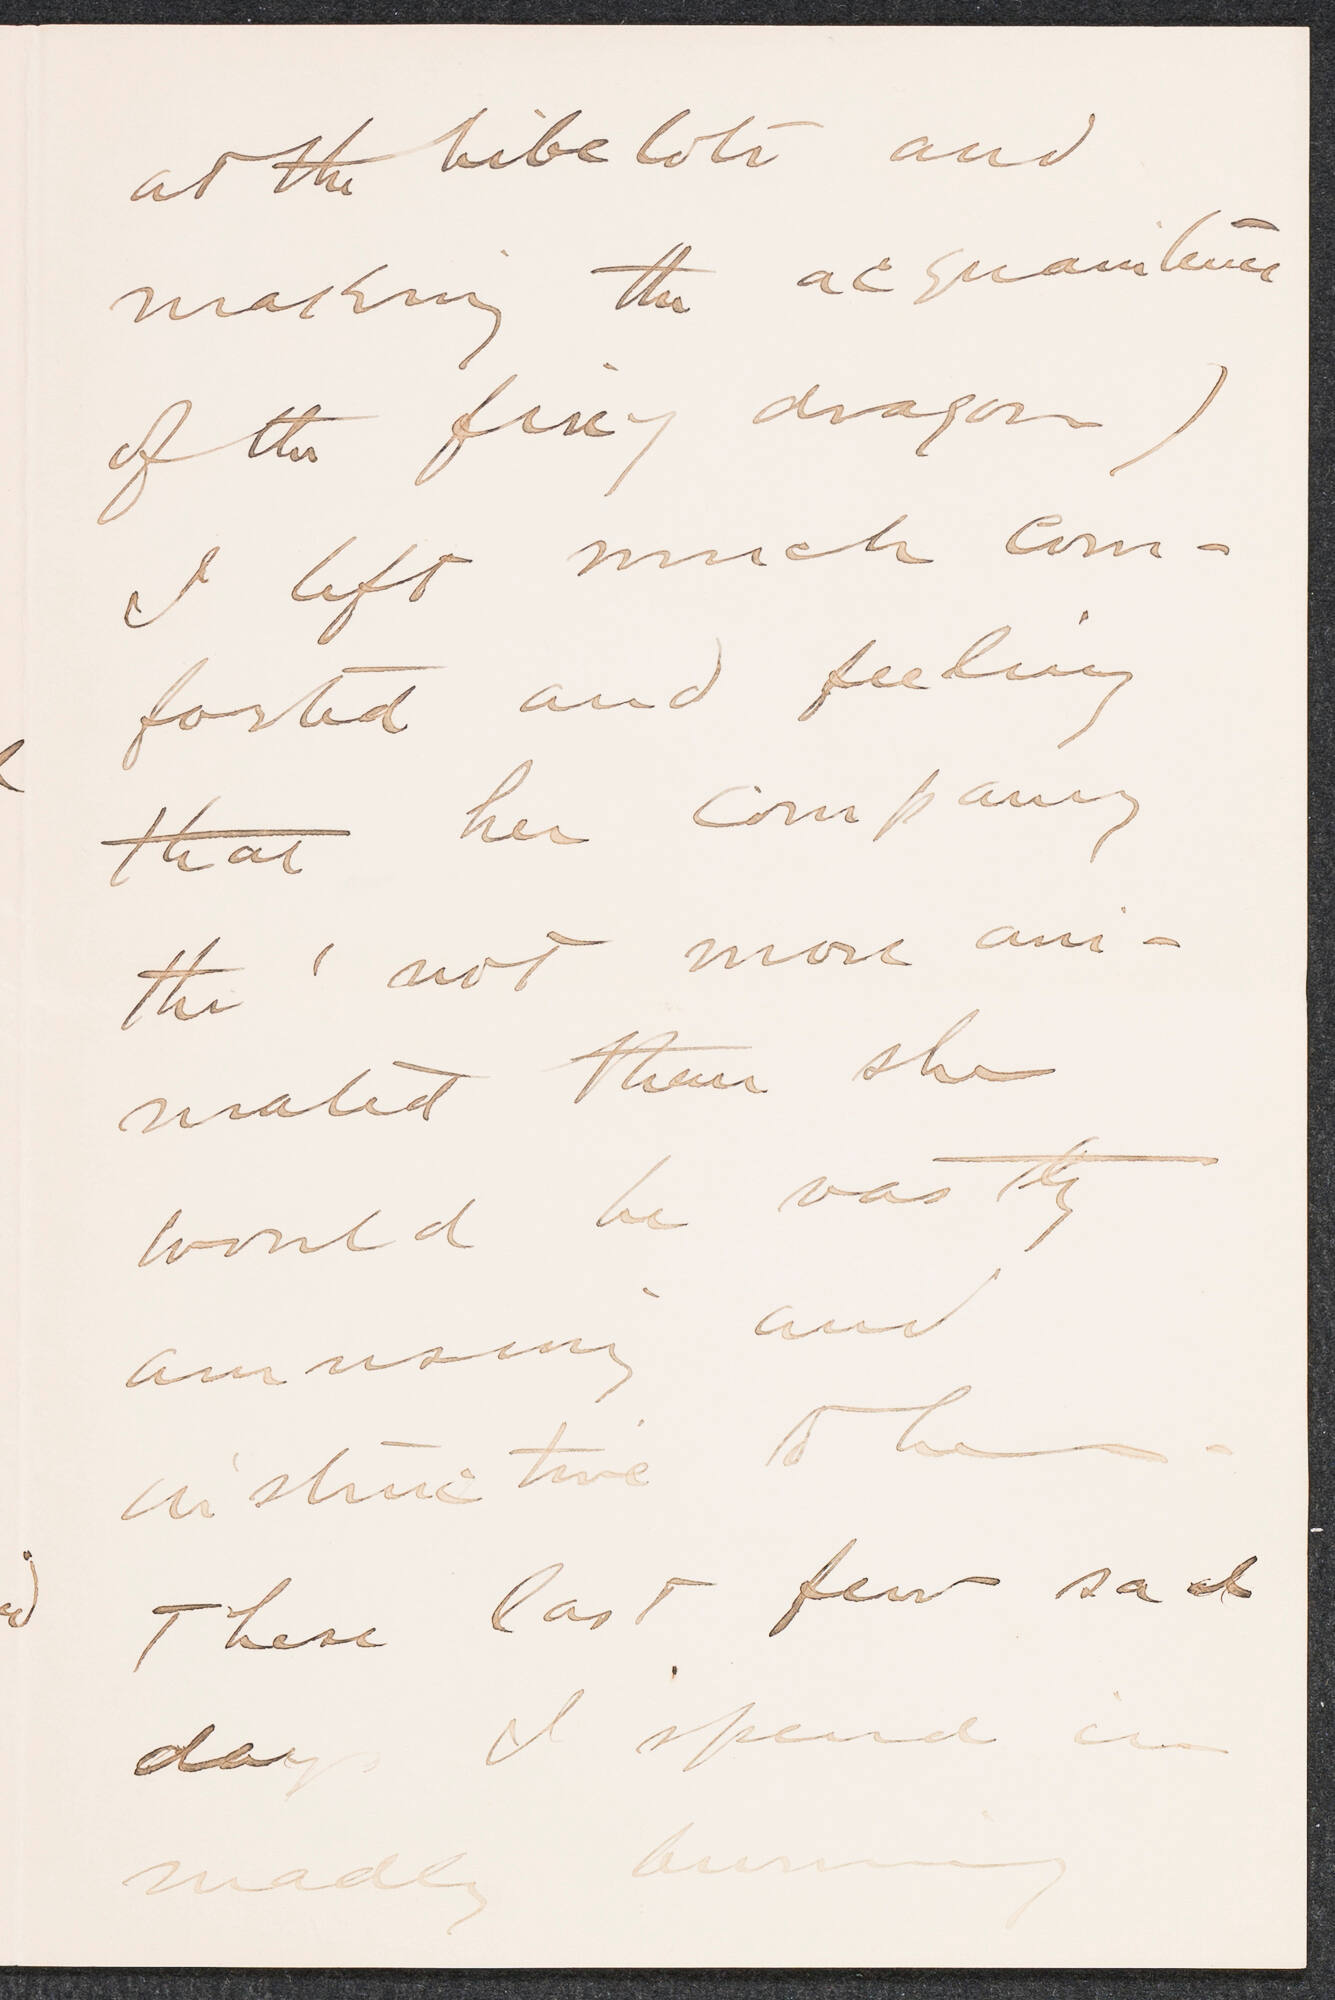 at the bibelots and
making the acquaintance
of the fiery dragon)
I left much com-
forted and feeling
that her company
tho' not more ani-
mated than she
would be vastly
amusing and
instructive to her -
These last few sad
days I spend in
madly burning